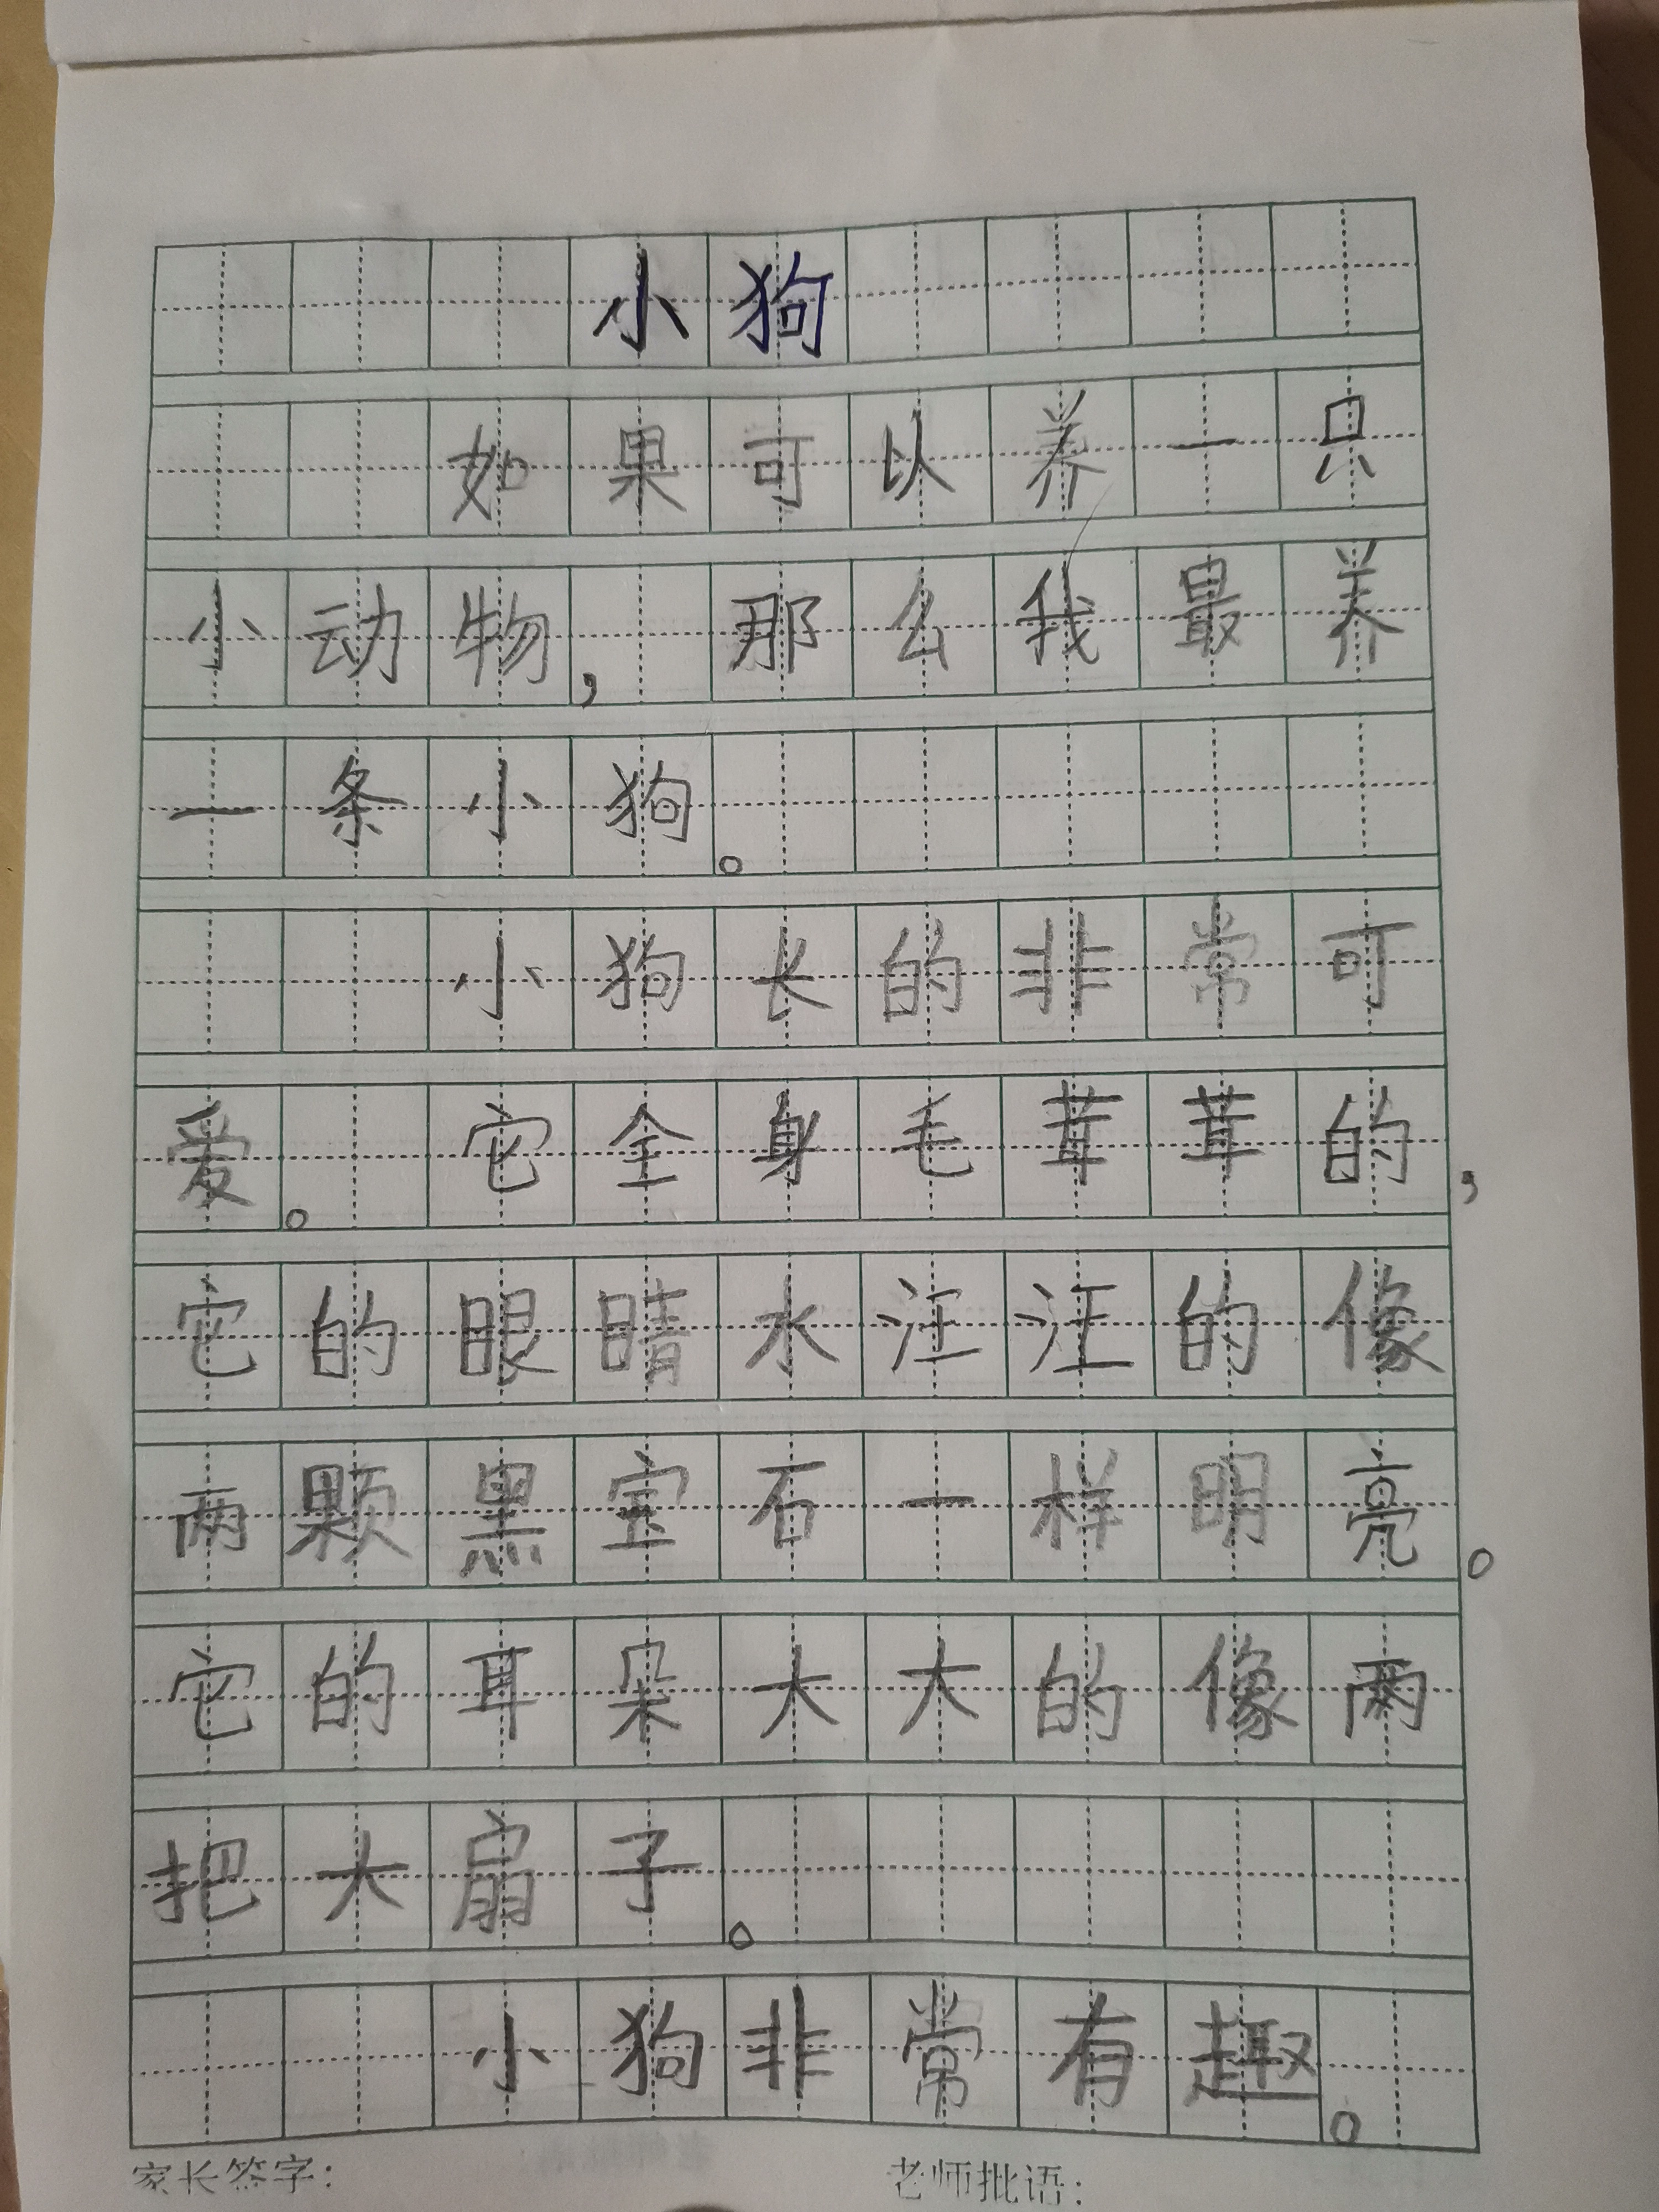 小狗
如果可以养一只
小动物,那么我最养
一条小狗。
小狗长的非常可
爱。它全身毛茸茸的,
它的眼睛水汪汪的像
两颗黑宝石一样明亮。
它的耳朵大大的像两
把大扇子。
小狗非常有趣。
家长签字: 老师批语: